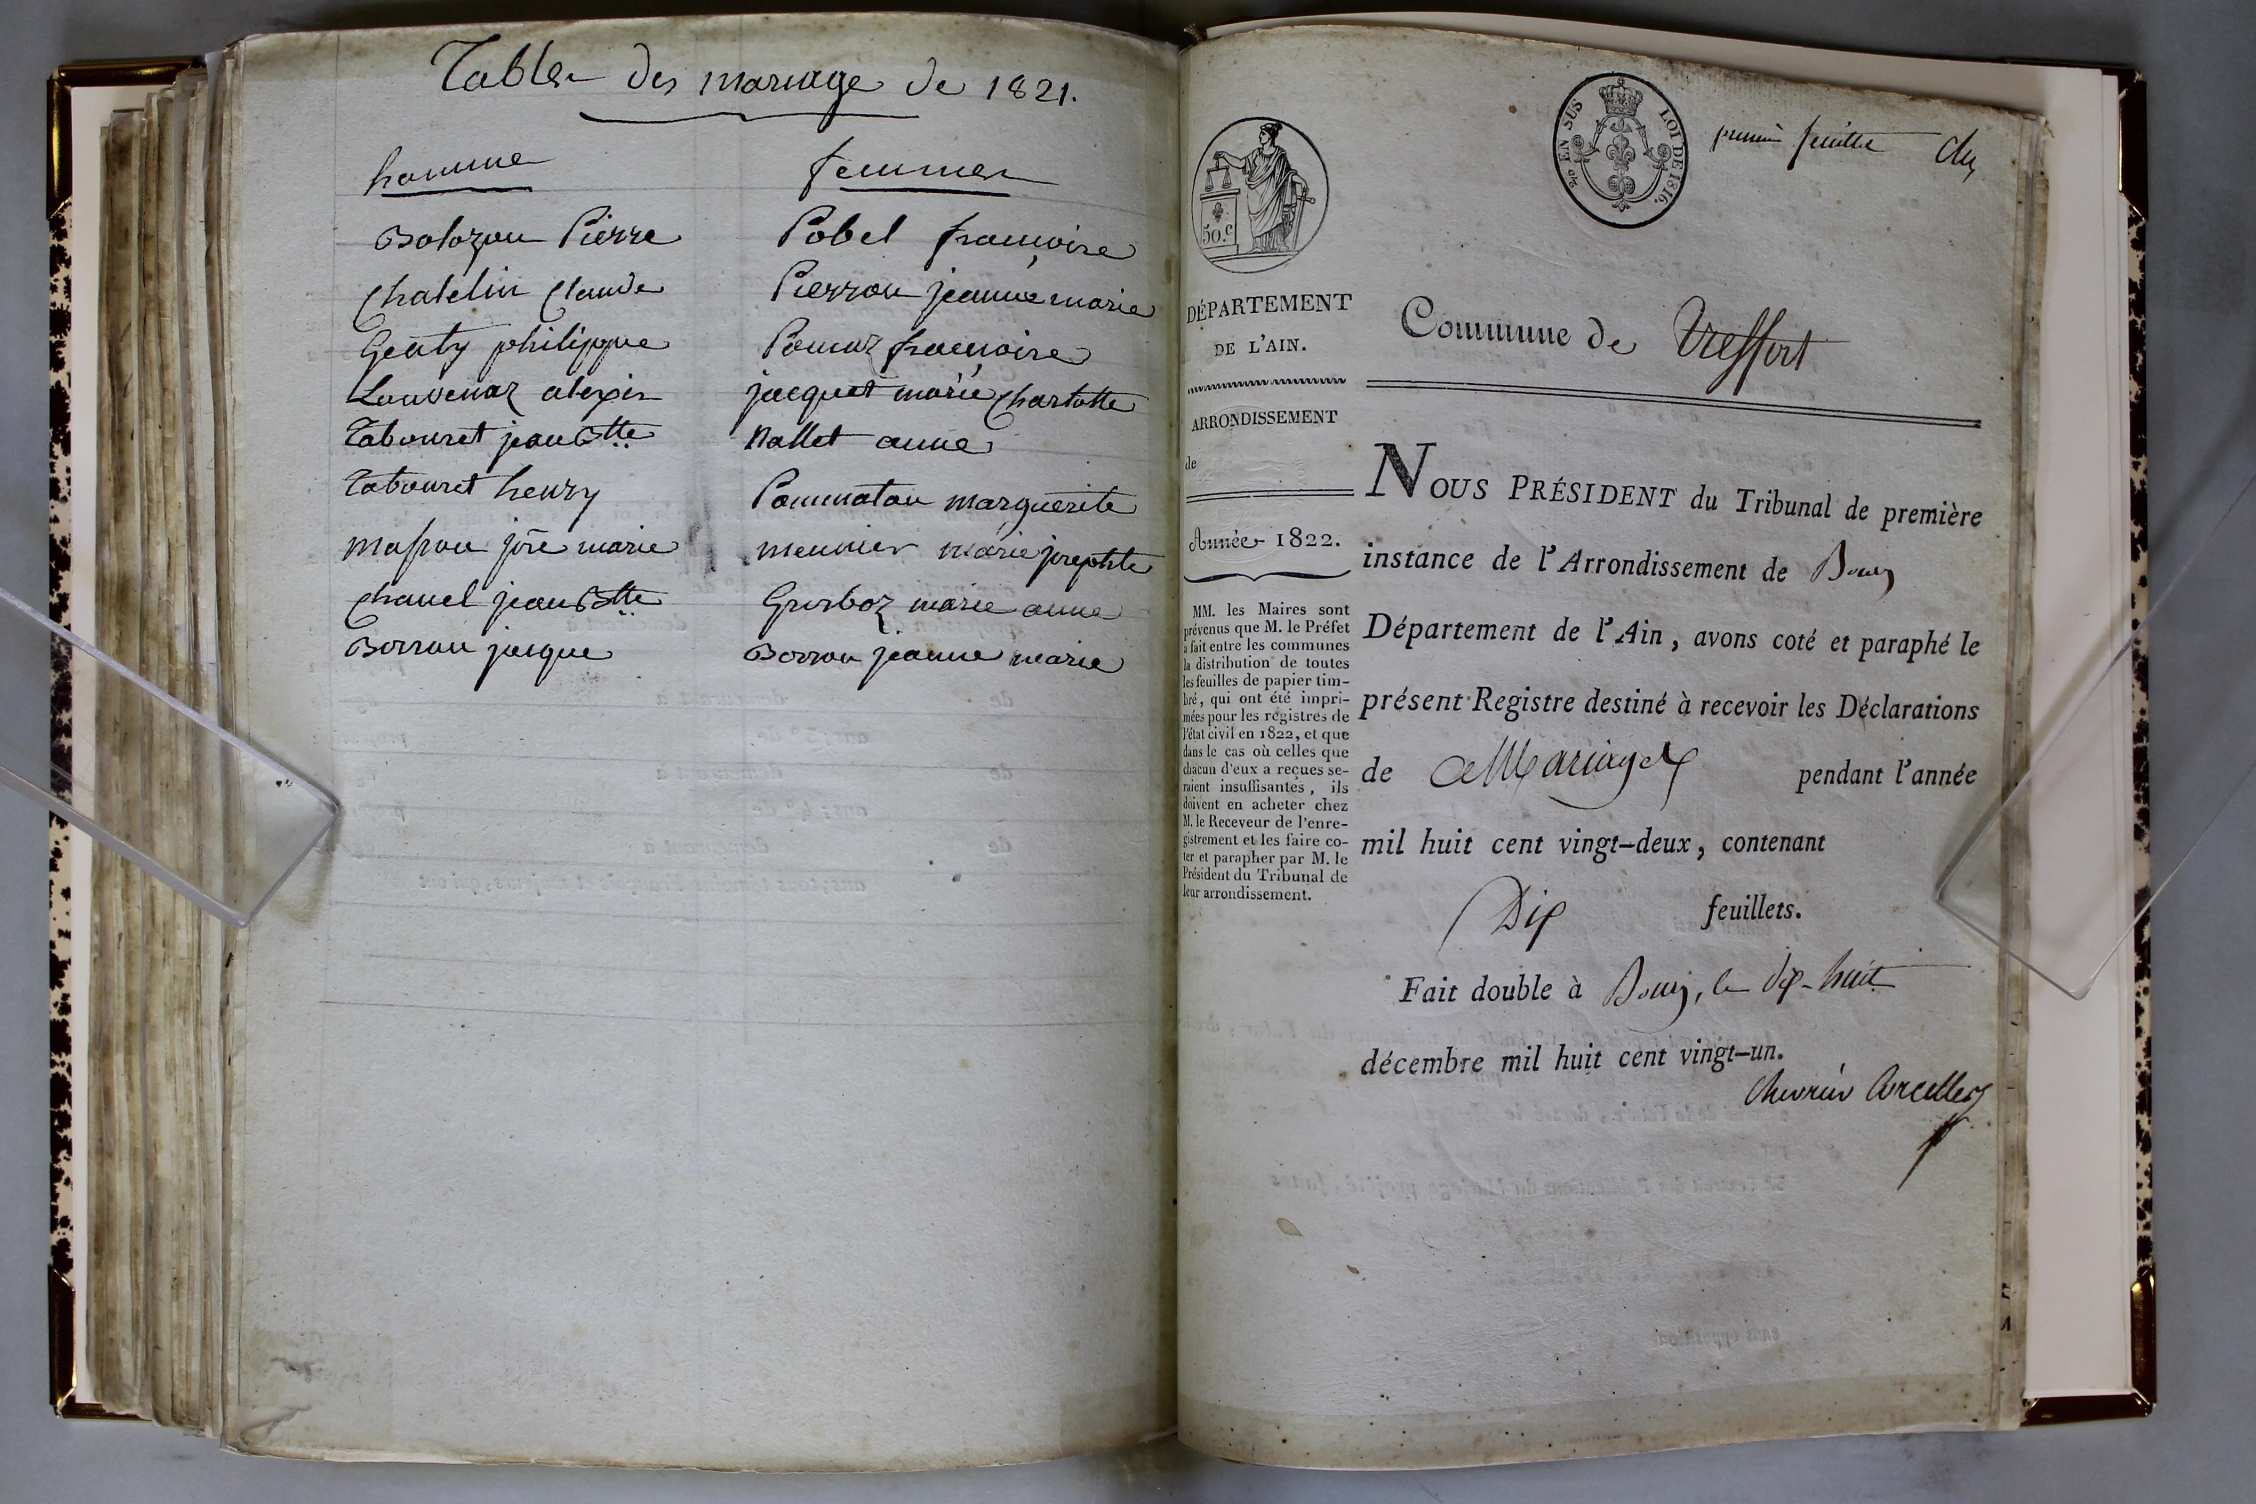 Tables des mariage de 1821.
homme femmes
Bolozon Pierre Pobel françoise
Chatelin Claude Pierron jeanne marie
Genty philippe Pomaz françoise
Louvenaz alexis jacquet marie Charlotte
Tabouret jean Btte Nallet anne
Tabouret henry Pommatau marguerite
Masson jph marie meunier marie josephte
Chanel jean Btte Grosboz marie anne
Borron jacque Borron jeanne marie
EN SUS LOI DE 1816.
premier feuillet Ch
50.c
DÉPARTEMENT
DE L'AIN.
ARRONDISSEMENT
de
Année 1822.
MM. les Maires sont
prévenus que M. le Préfet
a fait entre les communes
la distribution de toutes
les feuilles de papier tim-
bré, qui ont été impri-
mées pour les registres de
l'état civil en 1822, et que
dans le cas où celles que
chacun d'eux a reçues se-
raient insuffisantes, ils
doivent en acheter chez
M. le Receveur de l'enre-
gistrement et les faire co-
ter et parapher par M. le
Président du Tribunal de
leur arrondissement.
Commune de Treffort
NOUS PRÉSIDENT du Tribunal de première
instance de l'Arrondissement de Bourg
Département de l'Ain, avons coté et paraphé le
présent Registre destiné à recevoir les Déclarations
de Mariages pendant l'année
mil huit cent vingt-deux, contenant
Dix feuillets.
Fait double à Bourg, le dix-huit
décembre mil huit cent vingt-un.
Chevrier Corcelles